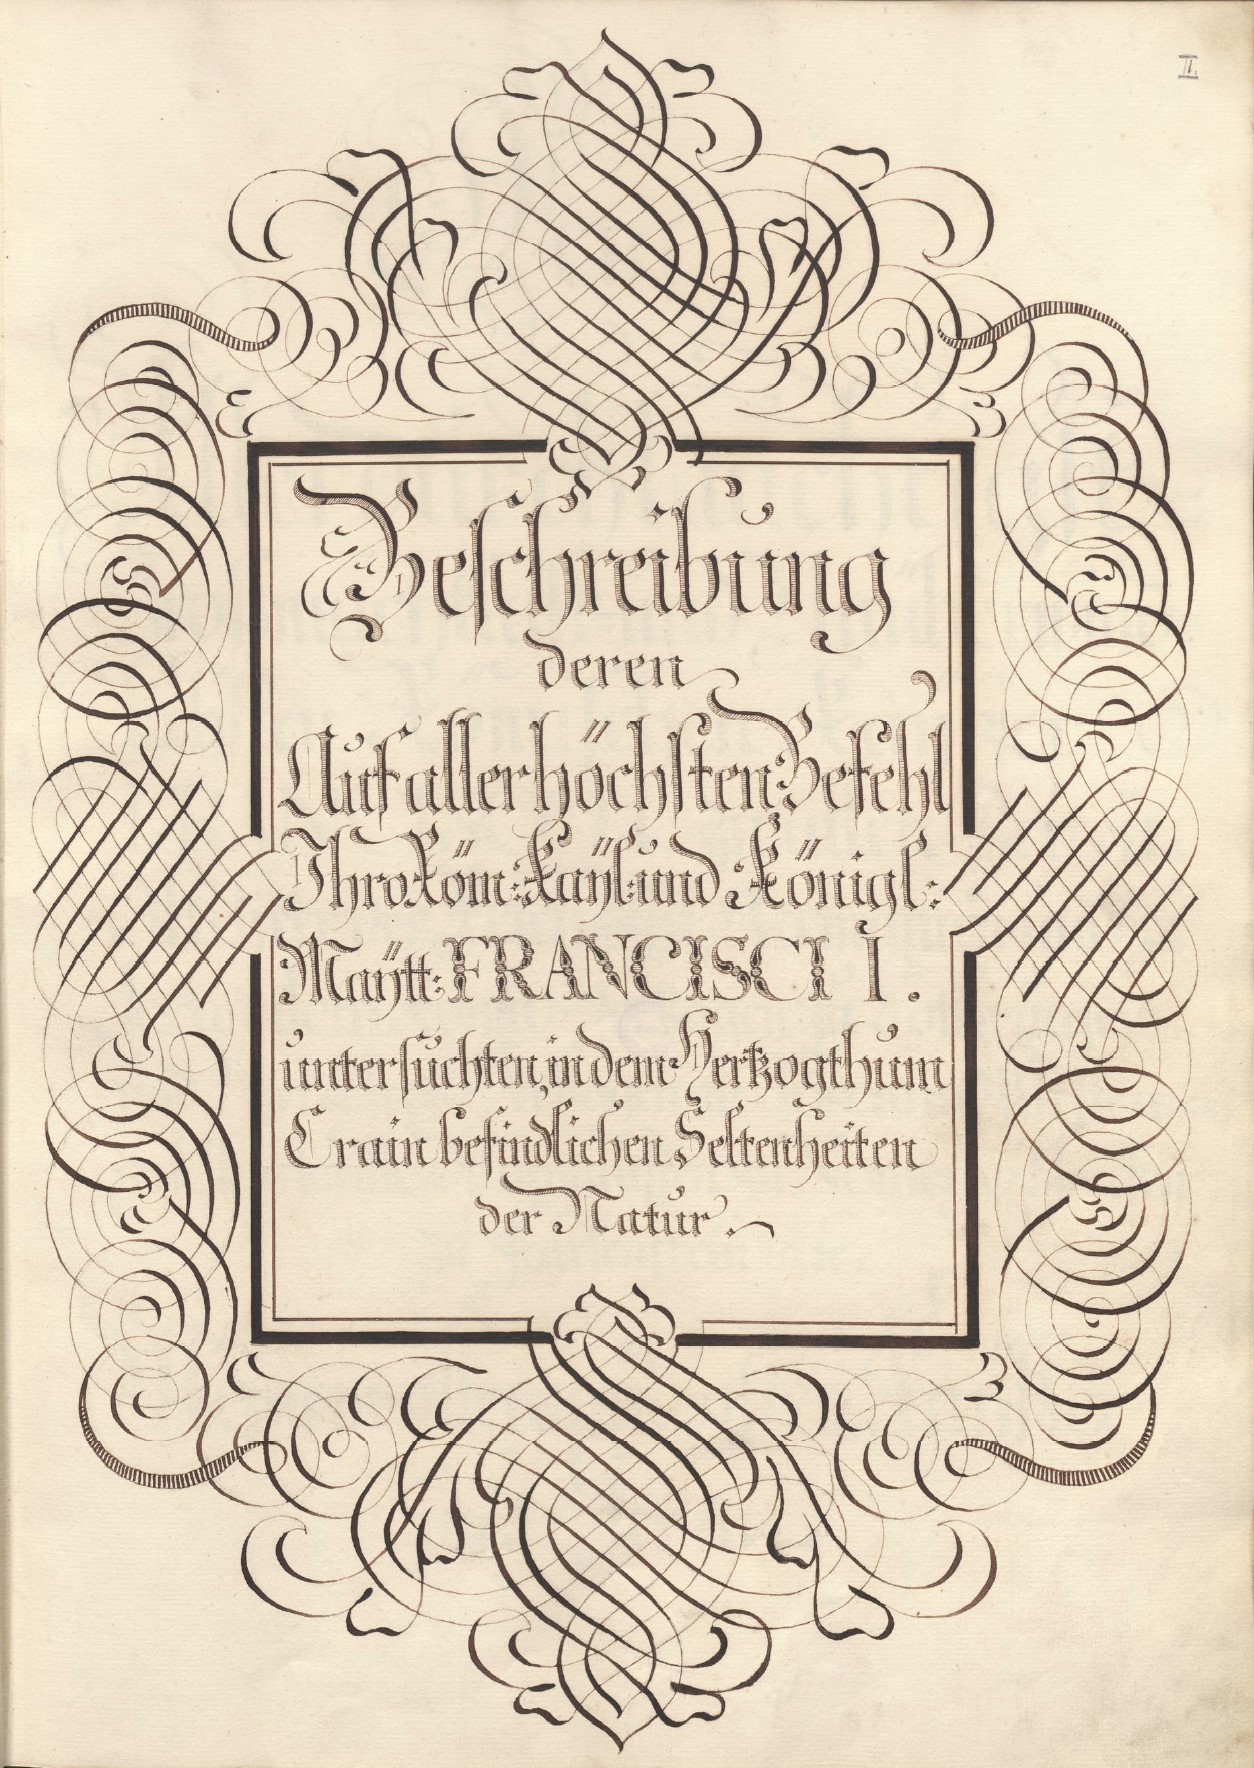 II.
Beschreibung
deren
Auf allerhöchsten Befehl
Ihro Röm: Kaÿl: und Königl:
Maÿtt: FRANCISCI I.
untersuchten, in dem Hertzogthum
Crain befindlichen Seltenheiten
der Natur.